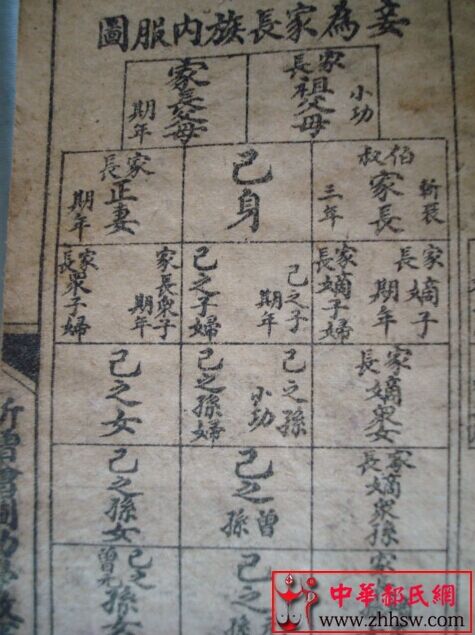 妾為家長族內服圖
家長祖父母
小功
家長父母
期年
伯叔
家長
斬衰
三年
己身
家長正妻
期年
家長嫡子
期年
家長嫡子婦
己之子
期年
己之子婦
家長衆子
期年
家長衆子婦
家長嫡衆女
己之孫
小功
己之孫婦
己之女
家長嫡衆孫
己之曾孫
己之孫女
己之
己之曾元孫女
中華郝氏網
www.zhhsw.com